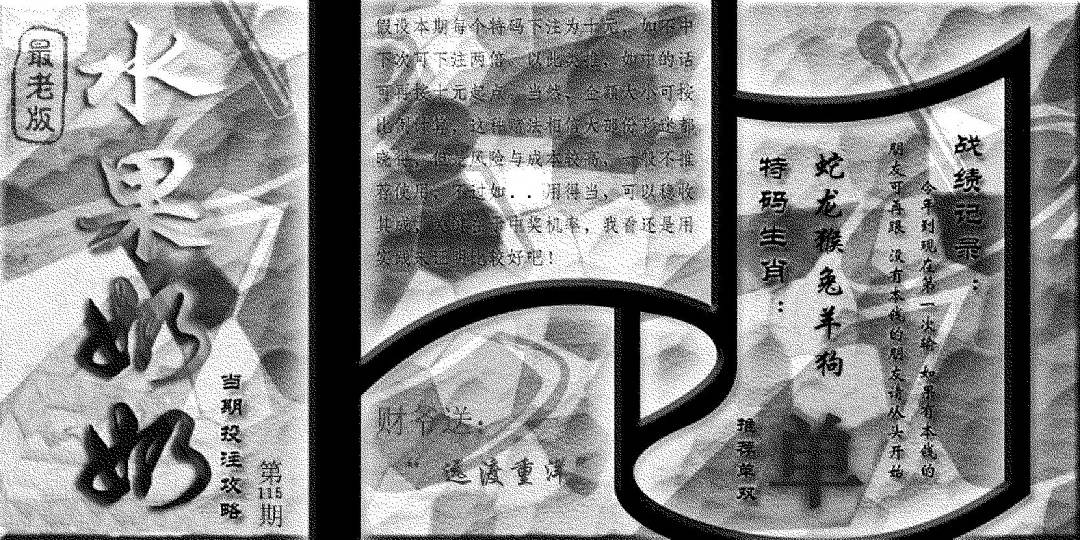 最老版
水果奶奶
当期投注攻略
第115期
假设本期每个特码下注为十元，如不中
下次可下注两倍，以此类推，如中的话
可再按十元起点，当然，金额大小可按
比例
这种
法相信大部份彩迷都
风险与成本较高，一般不推
荐使用，不过如..用得当，可以稳收
中奖机率，我看还是用
比较好吧！
财爷送：
“远渡重洋”
战绩记录：
今年到现在第一次输 如果有本钱的
朋友可再跟 没有本钱的朋友请从头开始
蛇龙猴兔羊狗
特码生肖：
推荐单双
单